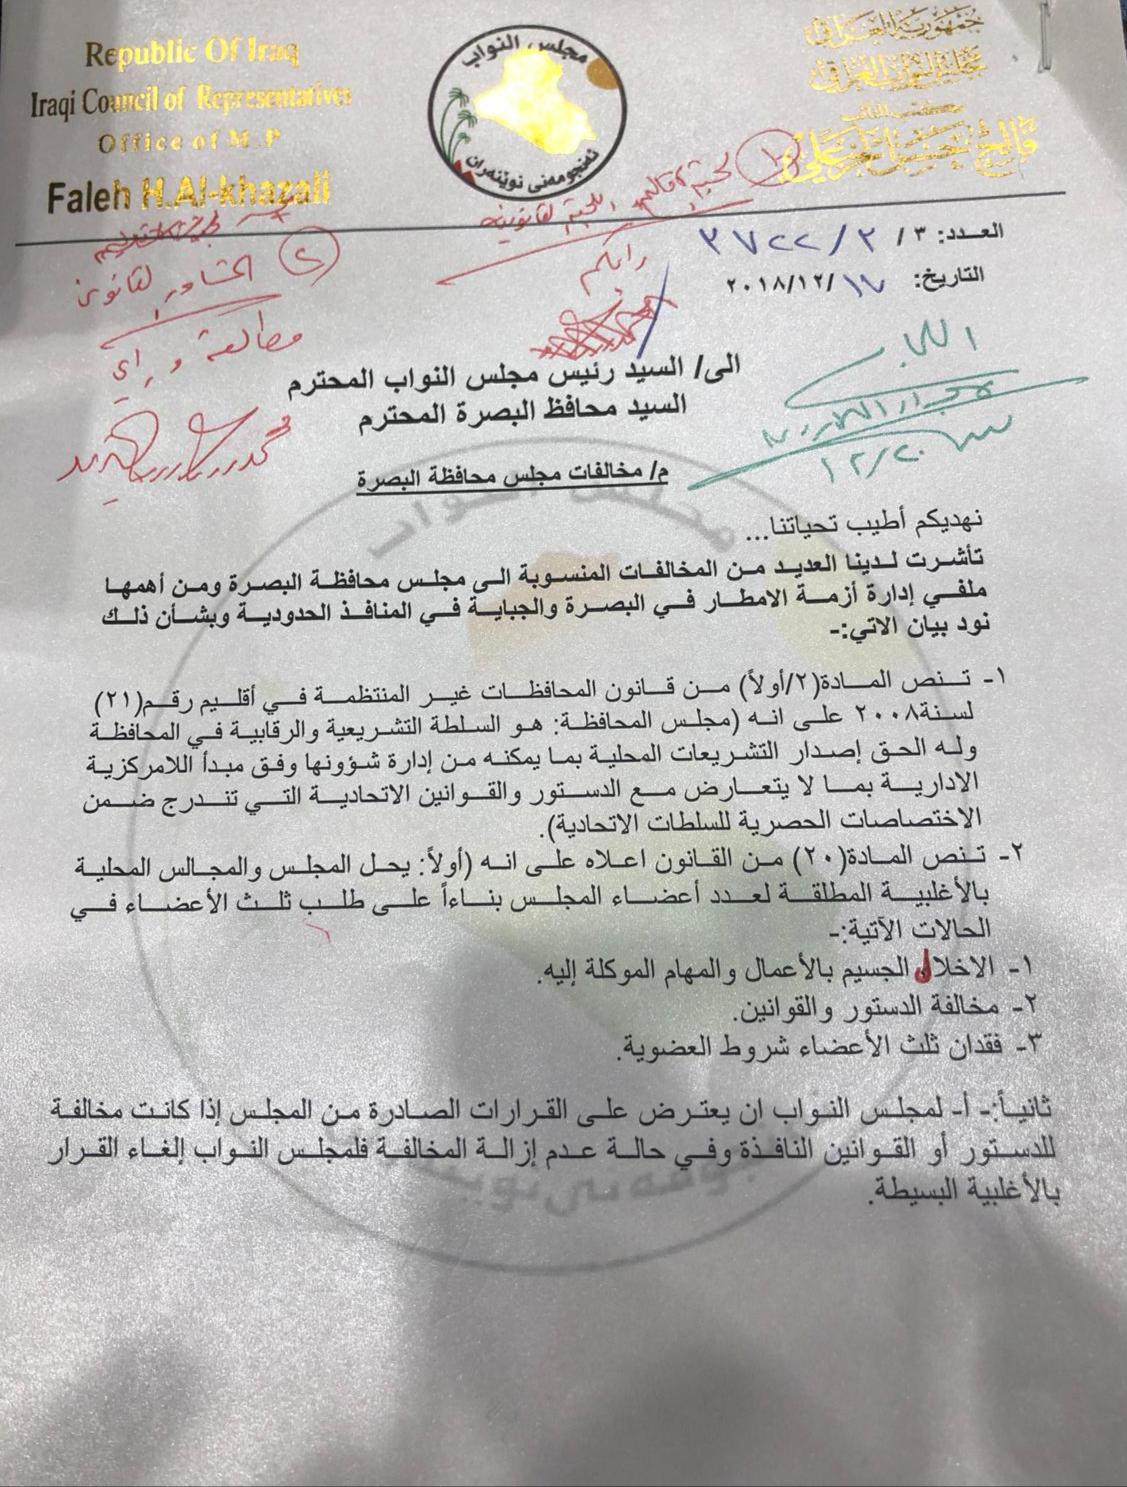 Republic Of Iraq
Iraqi Council of Representatives
Office of M.P
Faleh H.Al-khazali
مجلس النواب
ئەنجومەنی نوێنەران
جمهورية العراق
مجلس النواب العراقي
مكتب النائب
فالح حسن الخزعلي
العدد: ٣/ ٢/ ٣٧٢٢
التاريخ: ١٧/١٢/٢٠١٨
١
لجنة الاقاليم اللجنة القانونية
رايكم
٢
المشاور القانوني
مطالعة وراي
النائب
لاجراء اللازم
١٢/٢٠
الى/ السيد رئيس مجلس النواب المحترم
السيد محافظ البصرة المحترم
م/ مخالفات مجلس محافظة البصرة
نهديكم أطيب تحياتنا...
تأشرت لدينا العديد من المخالفات المنسوبة الى مجلس محافظة البصرة ومن أهمها
ملفي إدارة أزمة الامطار في البصرة والجباية في المنافذ الحدودية وبشأن ذلك
نود بيان الاتي:-
١- تنص المادة(٢/أولاً) من قانون المحافظات غير المنتظمة في أقليم رقم(٢١)
لسنة٢٠٠٨ على انه (مجلس المحافظة: هو السلطة التشريعية والرقابية في المحافظة
وله الحق إصدار التشريعات المحلية بما يمكنه من إدارة شؤونها وفق مبدأ اللامركزية
الادارية بما لا يتعارض مع الدستور والقوانين الاتحادية التي تندرج ضمن
الاختصاصات الحصرية للسلطات الاتحادية).
٢- تنص المادة(٢٠) من القانون اعلاه على انه (أولاً: يحل المجلس والمجالس المحلية
بالأغلبية المطلقة لعدد أعضاء المجلس بناءاً على طلب ثلث الأعضاء في
الحالات الآتية:-
١- الاخلال الجسيم بالأعمال والمهام الموكلة إليه.
٢- مخالفة الدستور والقوانين.
٣- فقدان ثلث الأعضاء شروط العضوية.
ثانياً:- أ- لمجلس النواب ان يعترض على القرارات الصادرة من المجلس إذا كانت مخالفة
للدستور أو القوانين النافذة وفي حالة عدم إزالة المخالفة فلمجلس النواب إلغاء القرار
بالأغلبية البسيطة.